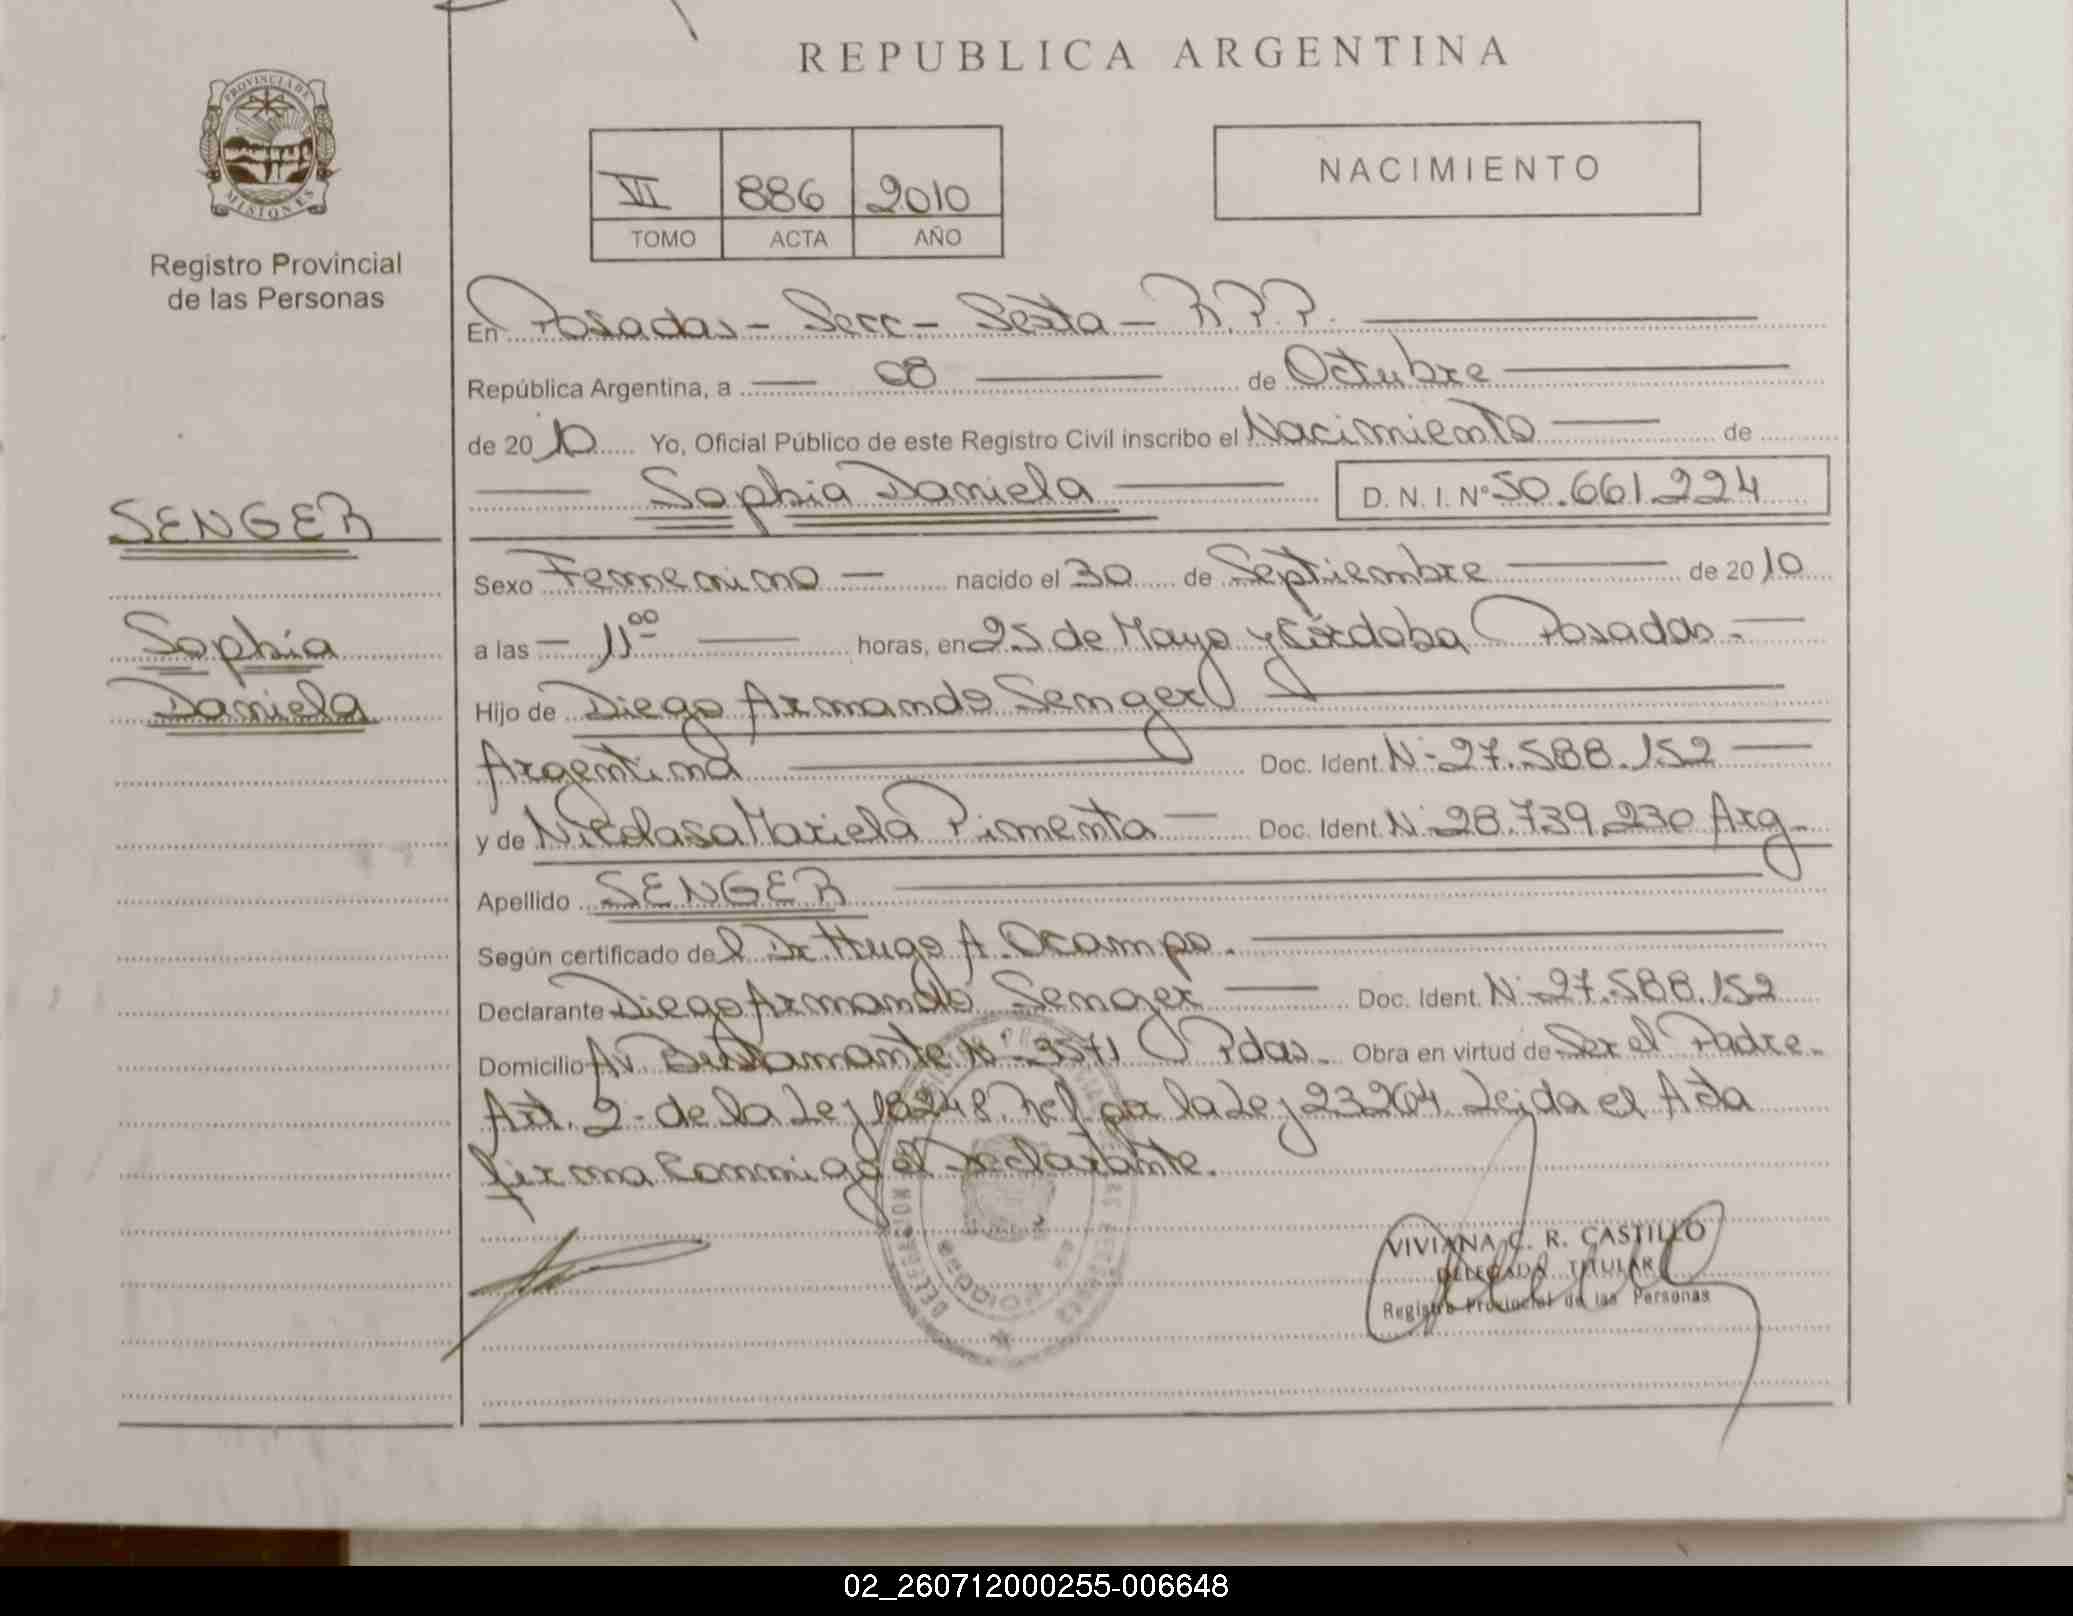 REPUBLICA ARGENTINA
PROVINCIA DE
MISIONES
Registro Provincial
de las Personas
VI 886 2010
TOMO ACTA AÑO
NACIMIENTO
En Posadas - Secc - Sexta - R.P.P.
República Argentina, a 08 de Octubre
de 2010 Yo, Oficial Público de este Registro Civil inscribo el Nacimiento de
Sophia Daniela D. N. I. Nº 50.661.224
SENGER
Sophia
Daniela
Sexo Femenino nacido el 30 de Septiembre de 2010
a las 11 00 horas, en 25 de Mayo y Córdoba Posadas.
Hijo de Diego Armando Senger
Argentina Doc. Ident. Nº 27.588.152
y de Nicolasa Mariela Pimenta Doc. Ident. Nº 28.739.230 Arg.
Apellido SENGER
Según certificado del Dr. Hugo A. Ocampo.
Declarante Diego Armando Senger Doc. Ident. Nº 27.588.152
Domicilio Av. Bustamante Nº 3571 Pdas. Obra en virtud de Ser el Padre.
Art. 2 - de la Ley 18248 Ref por la Ley 23264 Leida el Acta
firma Conmigo el Declarante.
VIVIANA C. R. CASTILLO
DELEGADA TITULAR
Registro Provincial de las Personas
02_260712000255-006648